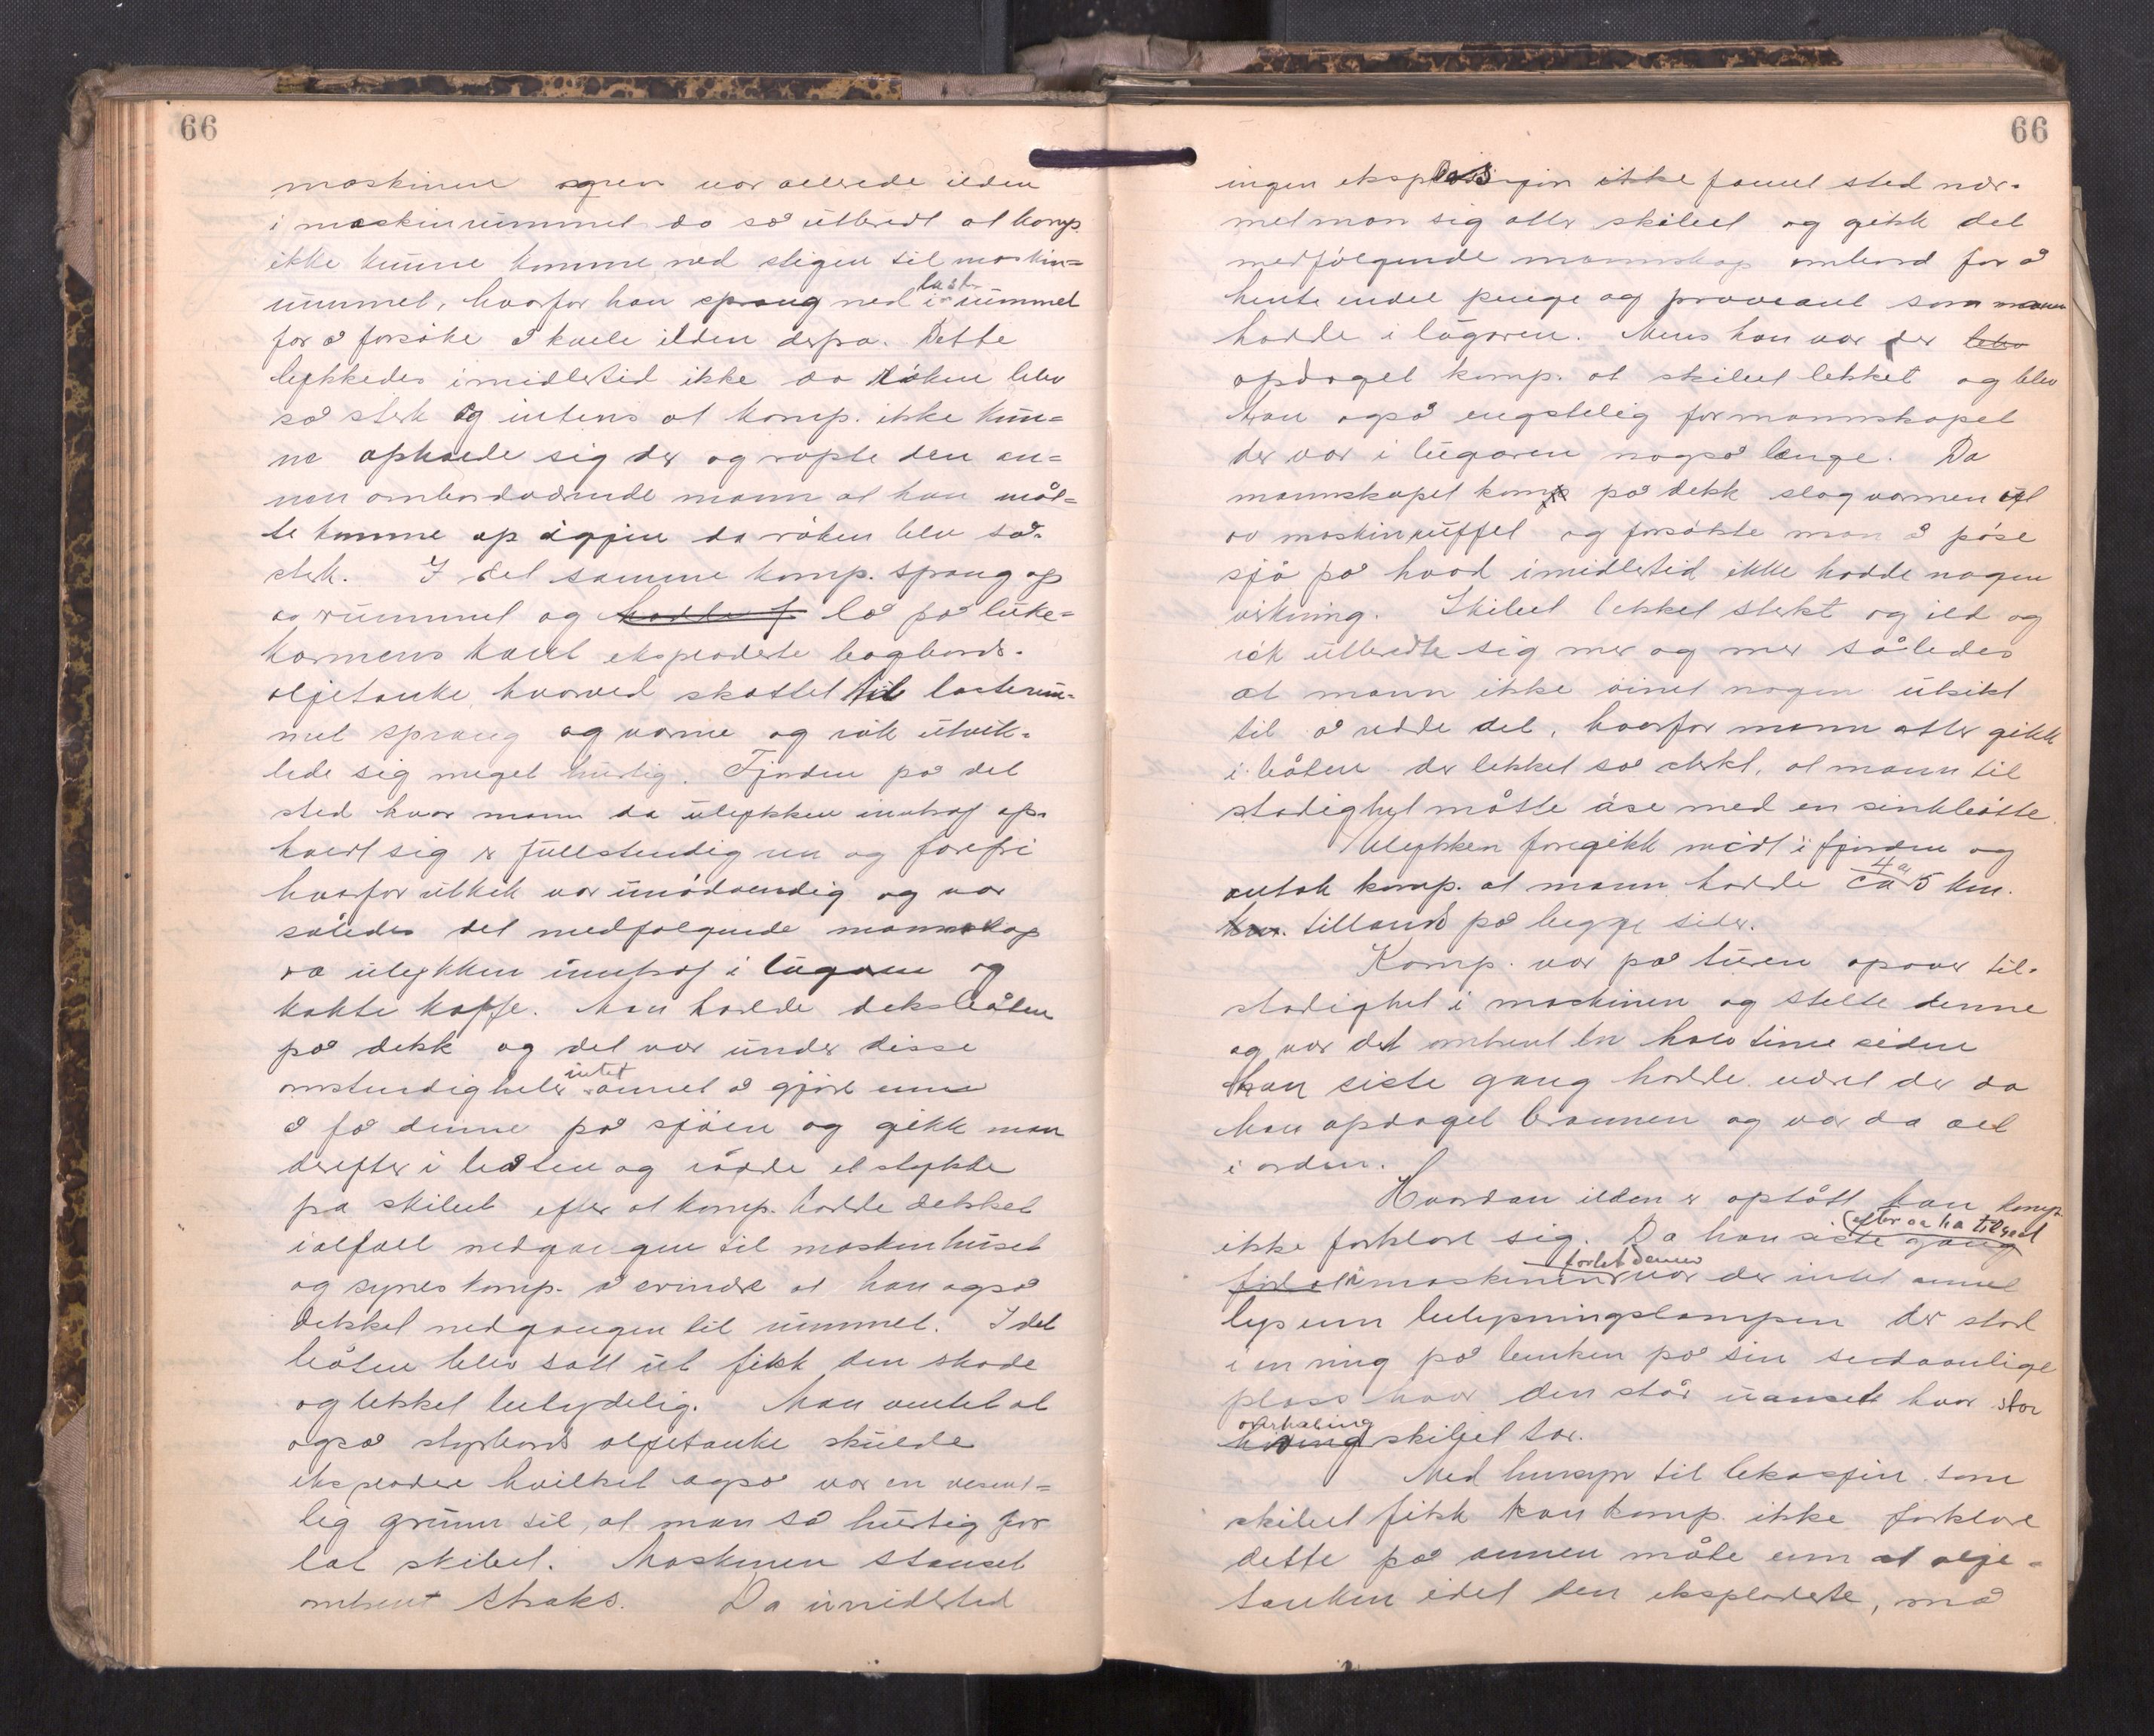 66
maskinen igjen var allerede ilden
i maskinrummet da så utbredt at komp.
ikke kunne komme ned stigen til maskin=
rummet, hvorfor han sprang ned i lasterummet
for å forsøke å kvele ilden derfra. Dette
lykkedes imidlertid ikke da röken blev
så sterk og intens at komp. ikke kun=
ne opholde sig der og ropte den an=
nen ombordværende mann at han måt=
te komme op igjen da röken blev så
sterk. I det samme komp. sprang op
av rummet og lå på luke=
karmens kant eksploderte bagbords
oljetanke, hvorved skottet til lasterum=
met sprang og varme og rök utvik=
lede sig meget hurtig. Fjorden på det
sted hvor mann da ulykken inntraf op=
holdt sig er fullstendig ren og farefri
hvorfor utkik var unödvendig og var
således det medfølgende mannskap
da ulykken inntraf i lugaren og
kokte kaffe. Man hadde deksbåten
på dekk og det var under disse
omstendigheter intet annet å gjöre enn
å få denne på sjöen og gikk man
derefter i båten og rodde et stykke
fra skibet efter at komp. hadde dekket
ialfall nedgangen til maskinhuset
og synes komp. å erindre at han også
dekket nedgangen til rummet. I det
båten blev satt ut fikk den skade
og lekket betydelig. Man ventet at
også styrbords oljetanke skulde
eksplodere hvilket også var en vesent=
lig grunn til, at man så hurtig for
lot skibet. Maskinen stanset
omtrent straks. Da imidlertid
66
ingen eksplosjon ikke fannt sted nær=
met man sig atter skibet og gikk det
medfölgende mannskap ombord for å
hente endel penge og proviant som mann
hadde i lugaren. Mens han var der blev
opdaget komp. at skibet lekket og blev
han også engstelig for mannskapet
der var i lugaren også lenge. Da
mannskapet kom på dekk slog varmen ut
av maskinruffet og forsökte man å pöse
sjö på hvad imidlertid ikke hadde nogen
virkning. Skibet lekket sterkt og ild og
rök utbredte sig mer og mer således
at mann ikke öinet nogen utsikt
til å redde det, hvorfor mann atter gikk
i båten der lekket så sterkt, at mann til
stadighet måtte öse med en sinkbötte.
Ulykken foregikk midt i fjorden og
antok komp. at mann hadde ca 4 a 5 km.
km. tillands på begge sider.
Komp. var på turen opover til=
stadighet i maskinen og stelte denne
og var det omtrent en halv time siden
han siste gang hadde været der da
han opdaget brannen og var da alt
i orden.
Hvordan ilden er opstått kan komp.
ikke forklare sig. Da han siste gang (efter aa ha tilseet
forlot maskinen forlot denne var der intet annet
lys enn belysningslampen der stod
i en ring på benken på sin sedvanlige
plass hvor den står uansett hvor stor
overhaling skibet tar.
Med hensyn til lekasjen som
skibet fikk kan komp. ikke forklare
dette på annen måte enn at olje=
tanken idet den eksploderte, må